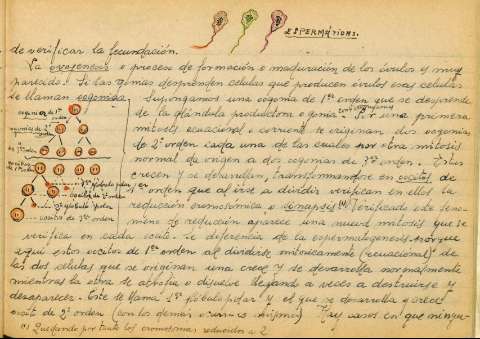 ESPERMÁTIDAS.
de verificar la fecundación.
La ovogenesis o proceso de formación o maduración de los óvulos es muy
parecido. Si las gónias desprenden celulas que producen óvulos esas celulas
se llaman oogonias. Supongamos una oogonia de 1er orden que se desprende
de la glándula productora o gonia. Por una primera
mitosis ecuacional o corriente se originan dos oogonias
de 2º orden cada una de las cuales por otra mitosis
normal da origen a dos oogonias de 3er orden. Estas
crecen y se desarrollan, transformándose en oocitos de
1er orden que al irse a dividir verifican en ellos la
reducción cromosómica o sinapsis (1) Verificado este fenó-
meno de reducción aparece una nueva mitosis que se
verifica en cada oocito. Se diferencia de la espermatogenesis porque
aquí estos oocitos de 1er orden al dividirse mitósicamente (reduccional) de
las dos células que se originan una crece y se desarrolla normalmente
mientras la otra se atrofia o disuelve llegando a veces a destruirse y
desaparecer. Este se llama 1er glóbulo polar y el que se desarrolla y crece
oocito de 2º orden (con los demás ocurre lo mismo) Hay casos en que ningu-
(1) Quedando por tanto los cromosomas reducidos a 2
oogonia de 1er orden
oogonias de 2º orden
1er glóbulo polar
oocito de 2º orden
2º glóbulo polar